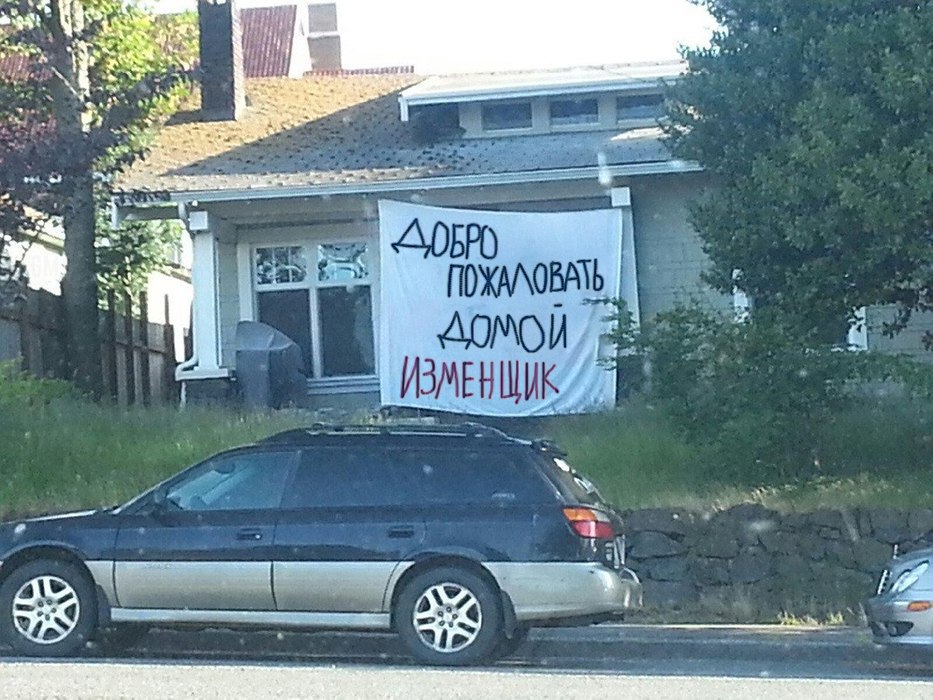 ДОБРО
ПОЖАЛОВАТЬ
ДОМОЙ
ИЗМЕНЩИК